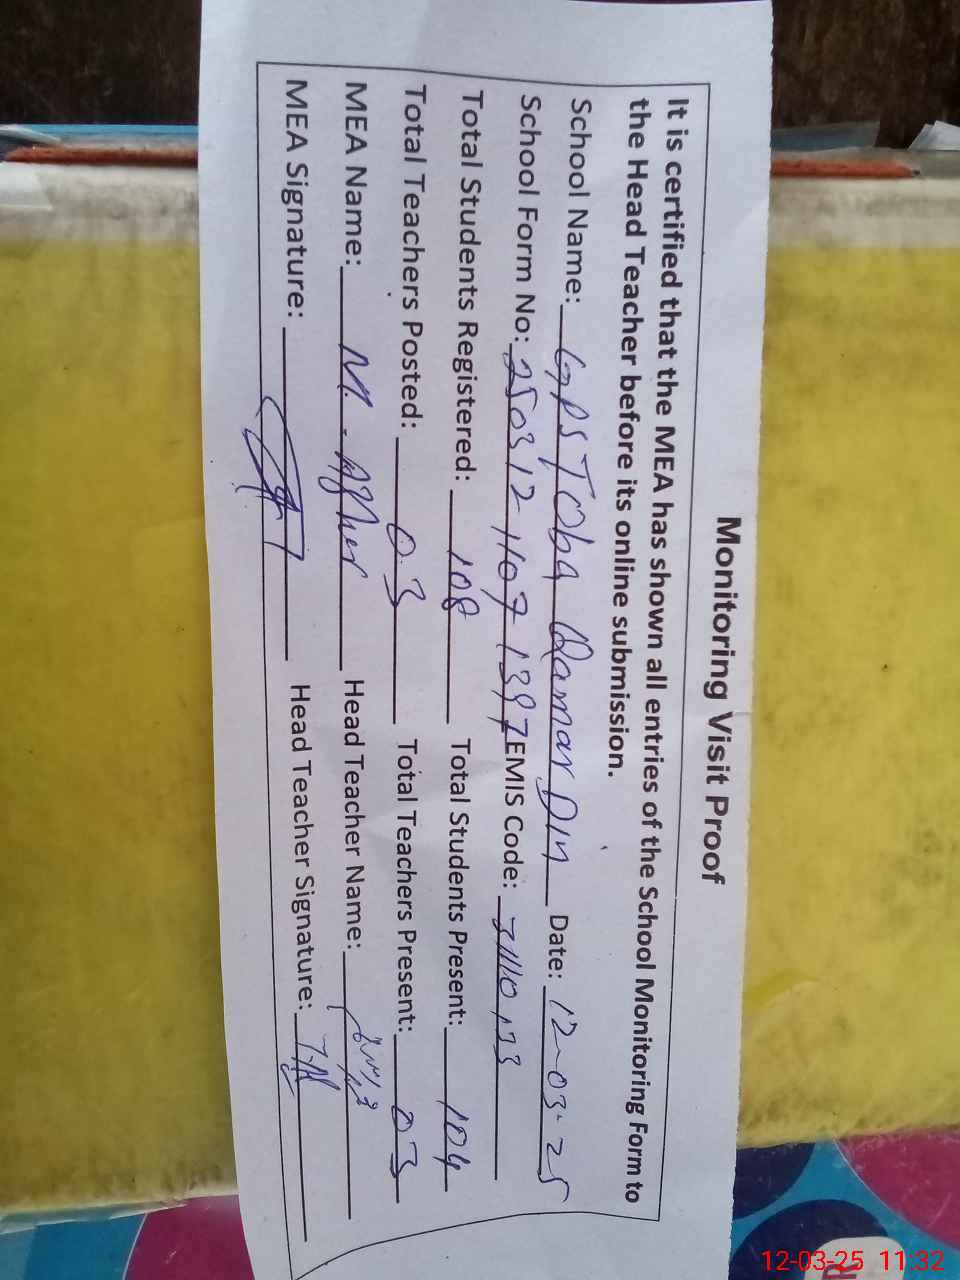 Monitoring Visit Proof
It is certified that the MEA has shown all entries of the School Monitoring Form to
the Head Teacher before its online submission.
School Name: GPS Toba Qamar Din Date: 12-03-25
School Form No: 25031211071397 EMIS Code:
Total Students Registered: 108 Total Students Present: 104
Total Teachers Posted: 03 Total Teachers Present: 03
MEA Name: M. Head Teacher Name:
MEA Signature: Head Teacher Signature:
12-03-25 11:32